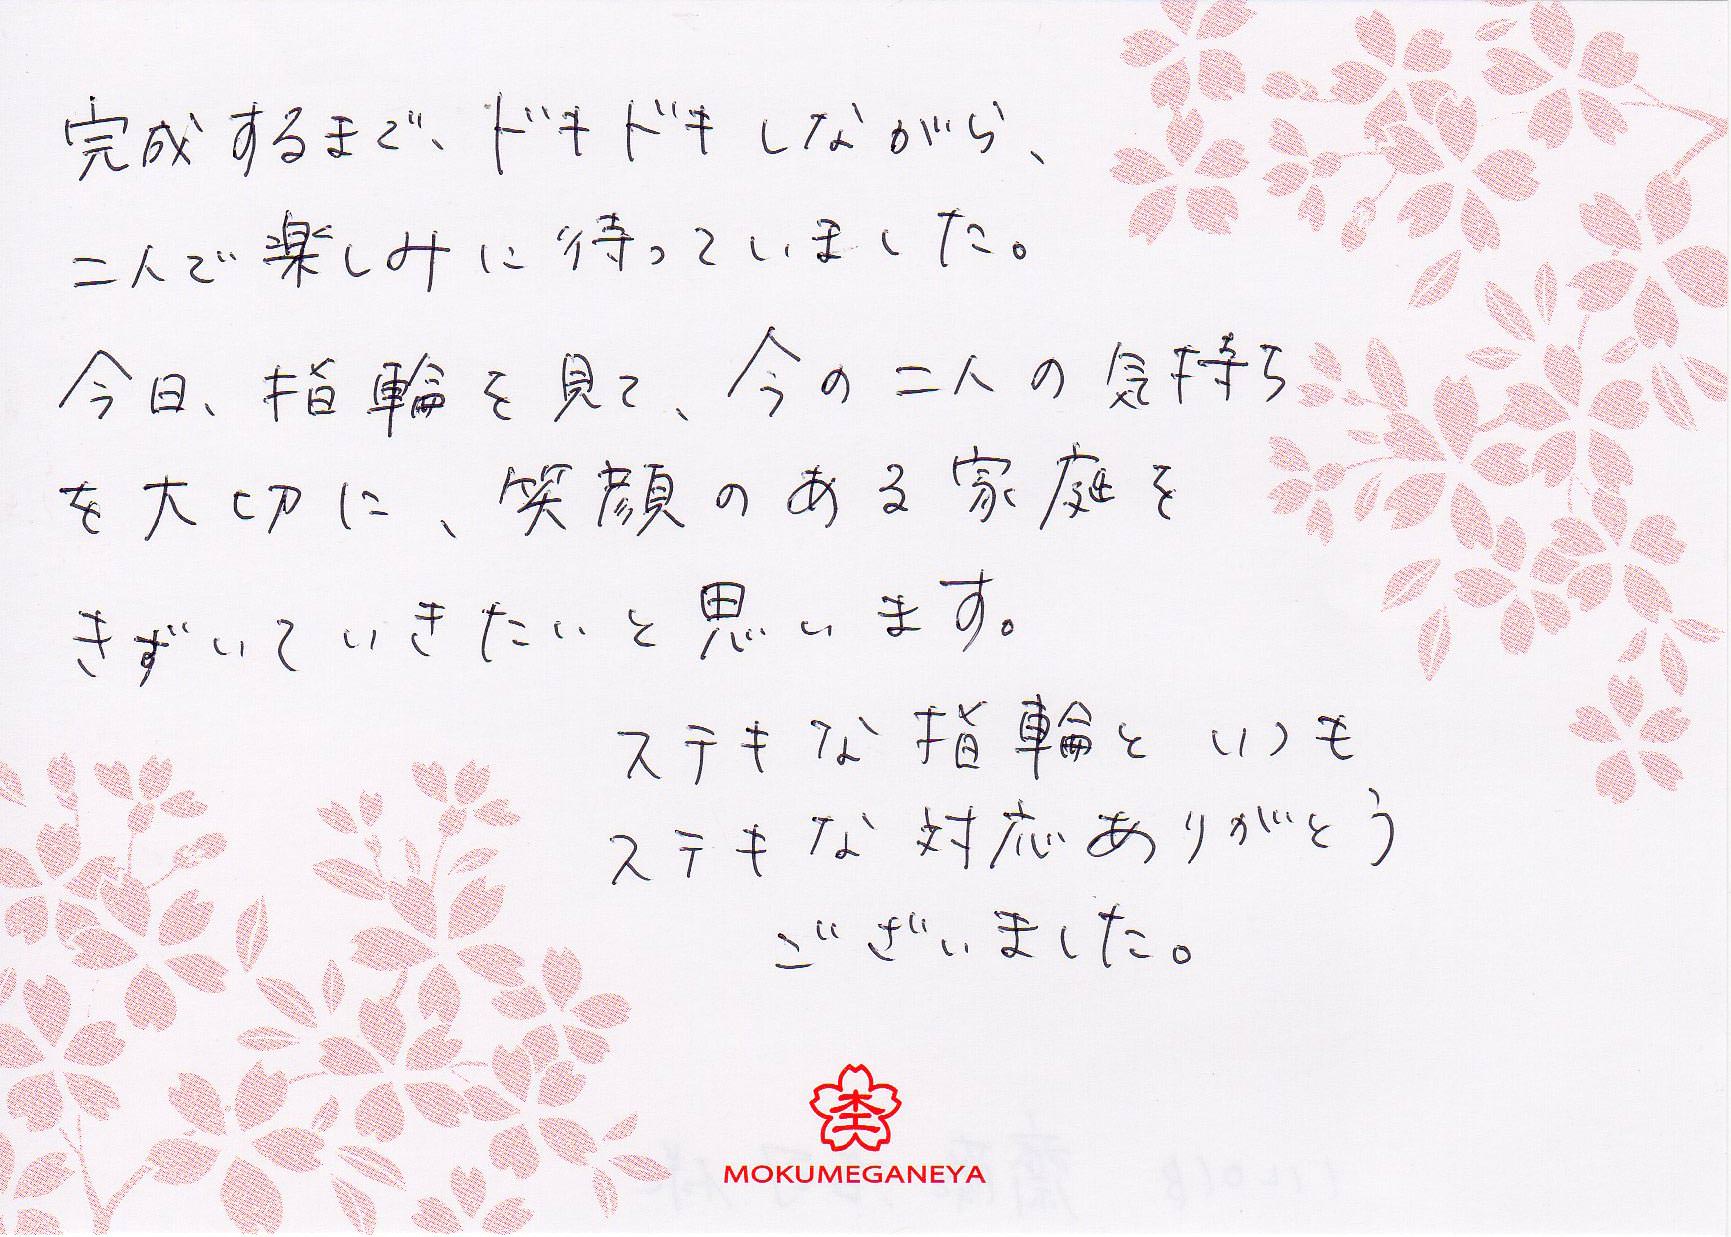 完成するまで、ドキドキしながら、
二人で楽しみに待っていました。
今日、指輪を見て、今の二人の気持ち
を大切に、笑顔のある家庭を
きずいていきたいと思います。
ステキな指輪といつも
ステキな対応ありがとう
ございました。
MOKUMEGANEYA